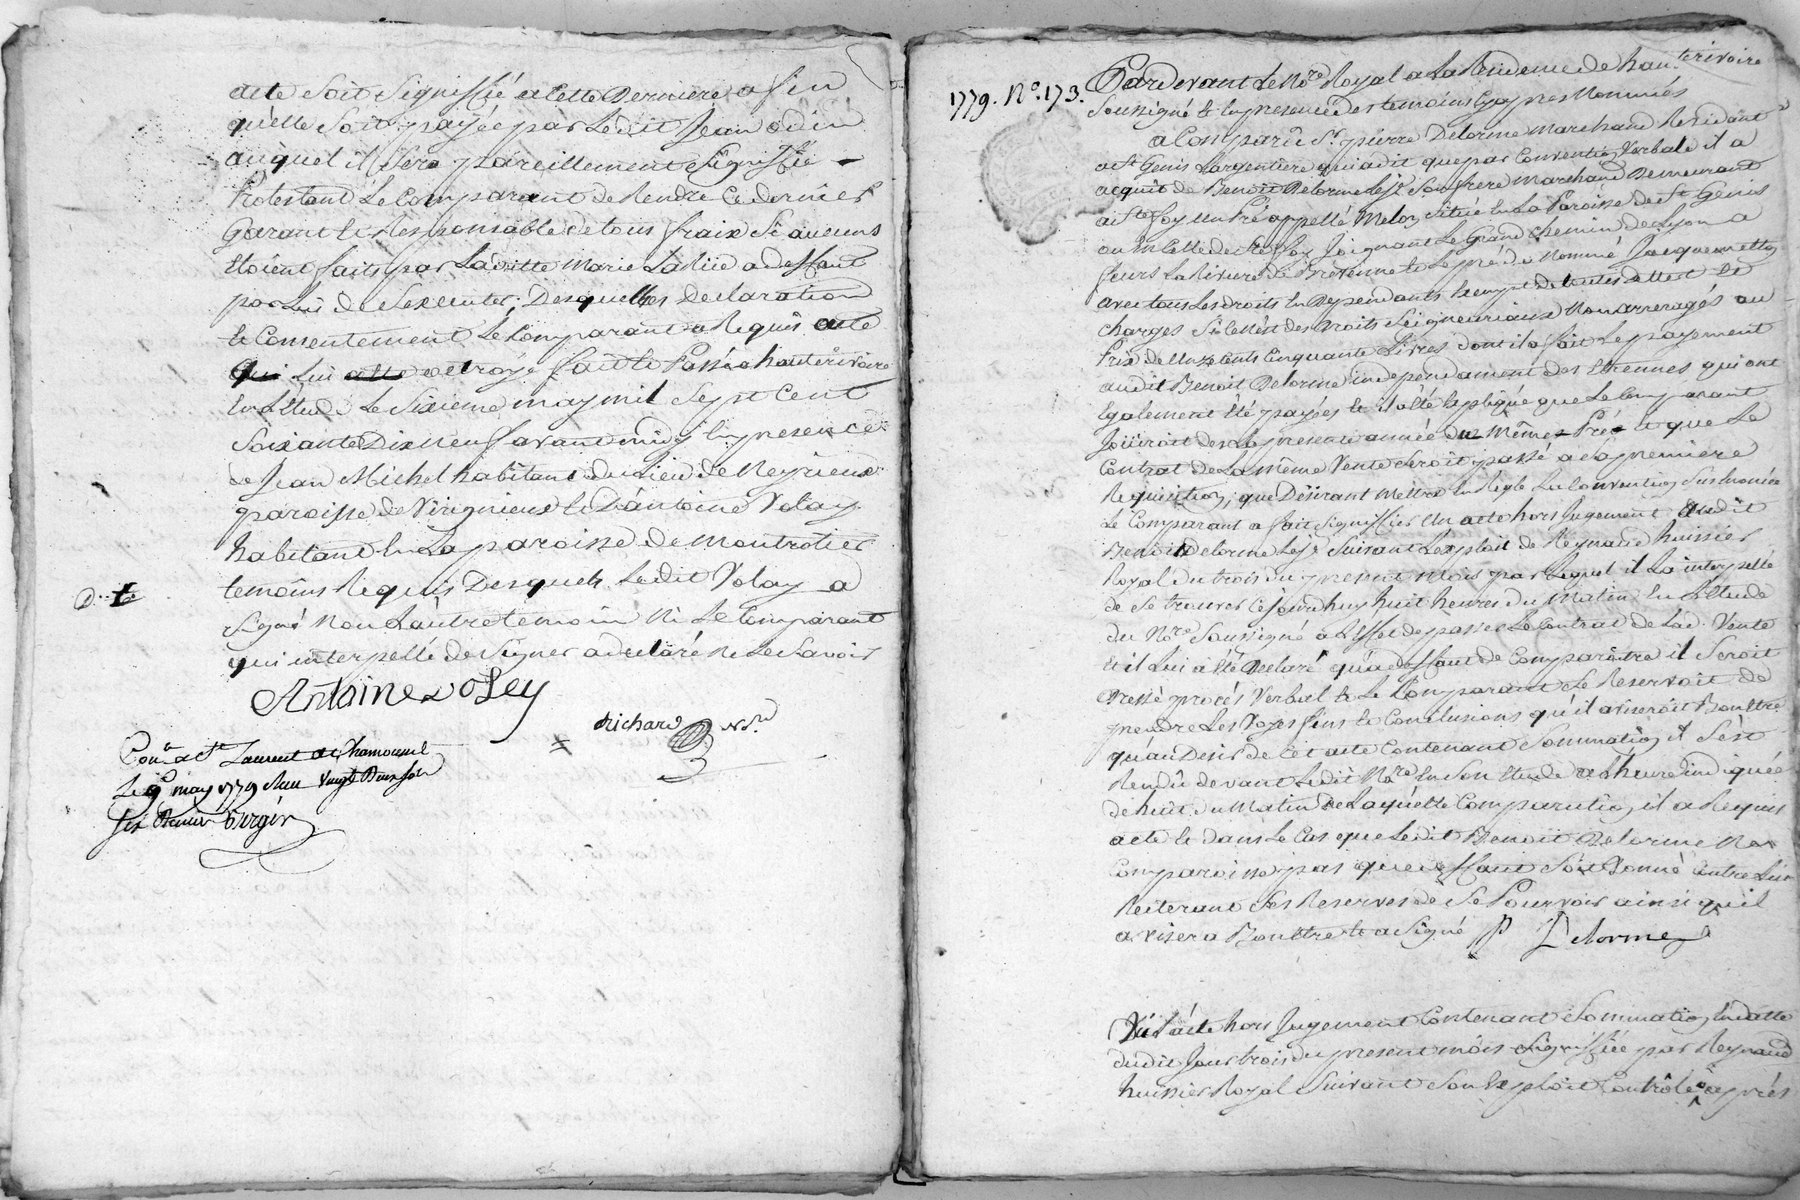 acte soit signiffié a cette derniere afin
qu'elle soit payée par ledit Jean odin
auquel il sera pareillement signiffié
Protestant le Comparant de Rendre ce dernier
Garant et Responsable de tous fraix si aucuns
étoient faits par laditte Marie a deffaut
par lui de s'executer, Desquelles Declaration
et Consentement le Comparant a Requis acte
qui lui acte octroyé fait et Passé a hauterivoire
en l'étude le sixieme may mil sept cent
soixante Dix neuf avant midy en presence
de Jean Michel habitant du Lieu de Meyrieux
paroisse de Virignieux et D'antoine Volay
habitant en la paroisse de Montrotier
temoins Requis Desquels ledit Volay a
D..te
signé non l'autre temoin ni le Comparant
qui interpellé de signer a declaré ne le savoir
Antoine voley
Richard Nre
Con. a St Laurent de Chamousset
Le 9 may 1779 Reçu
1779. No. 173.
Pardevant le Nore Royal a la Residence de hauterivoire
soussigné et en presence des temoins cy apres Nommés
a Comparû Sr. pierre Delorme marchand Residant
a St Genis l'argentiere qui a dit que par Convention Verbale il a
acquit de Benoit Delorme son frere marchand Demeurant
a Ste foy un Pré appellé situé en la Paroisse de St Genis
ou en celle de Ste foy Joignant le Grand chemin de Lyon a
feurs la Riviere de Brevenne et le pré du Nommé
avec tous les droits en Dependants exempt de toutes dettes et
charges si ce n'est des droits seigneuriaux Non arreragés au
Prix de onze cents cinquante Livres dont il a fait le payement
audit Benoit Delorme independament des etrennes qui ont
egalement été payées et il a été expliqué que le Comparant
Joüiroit des la presente année du même Pré et que le
Contrat de la même Vente seroit passé a la premiere
Requisition, que Désirant mettre en Regle la convention susenoncée
Le Comparant a fait signiffier un acte hors Jugement audit
Benoit Delorme suivant l'exploit de Reynard huissier
Royal du trois du present mois par lequel il l'a interpellé
de se trouver cejourdhuy huit heures du Matin en l'étude
du Nore soussigné a l'effet de passer le Contrat de lad. Vente
et il lui a été Declaré qu'a deffaut de Comparoitre il seroit
dressé procés Verbal et le Comparant se Reservoit de
prendre les Voyes fins et Conclusions qu'il aviseroit Bon être
qu'au Desir de cet acte contenant sommation il s'est
Rendû devant ledit Nore en son étude a l'heure indiquée
de huit du Matin de laquelle Comparution, il a Requis
acte et dans le Cas que ledit Benoit Delorme Ne
Comparoisse pas que deffaut soit Donné contre lui
Reiterant ses Reserves de se Pourvoir ainsi qu'il
avisera Bon être et a signé P Delorme
Vû l'acte hors Jugement Contenant sommation, en datte
dudit Jour trois du present mois signiffiée par Reynard
huissier Royal suivant son exploit Controlé apres